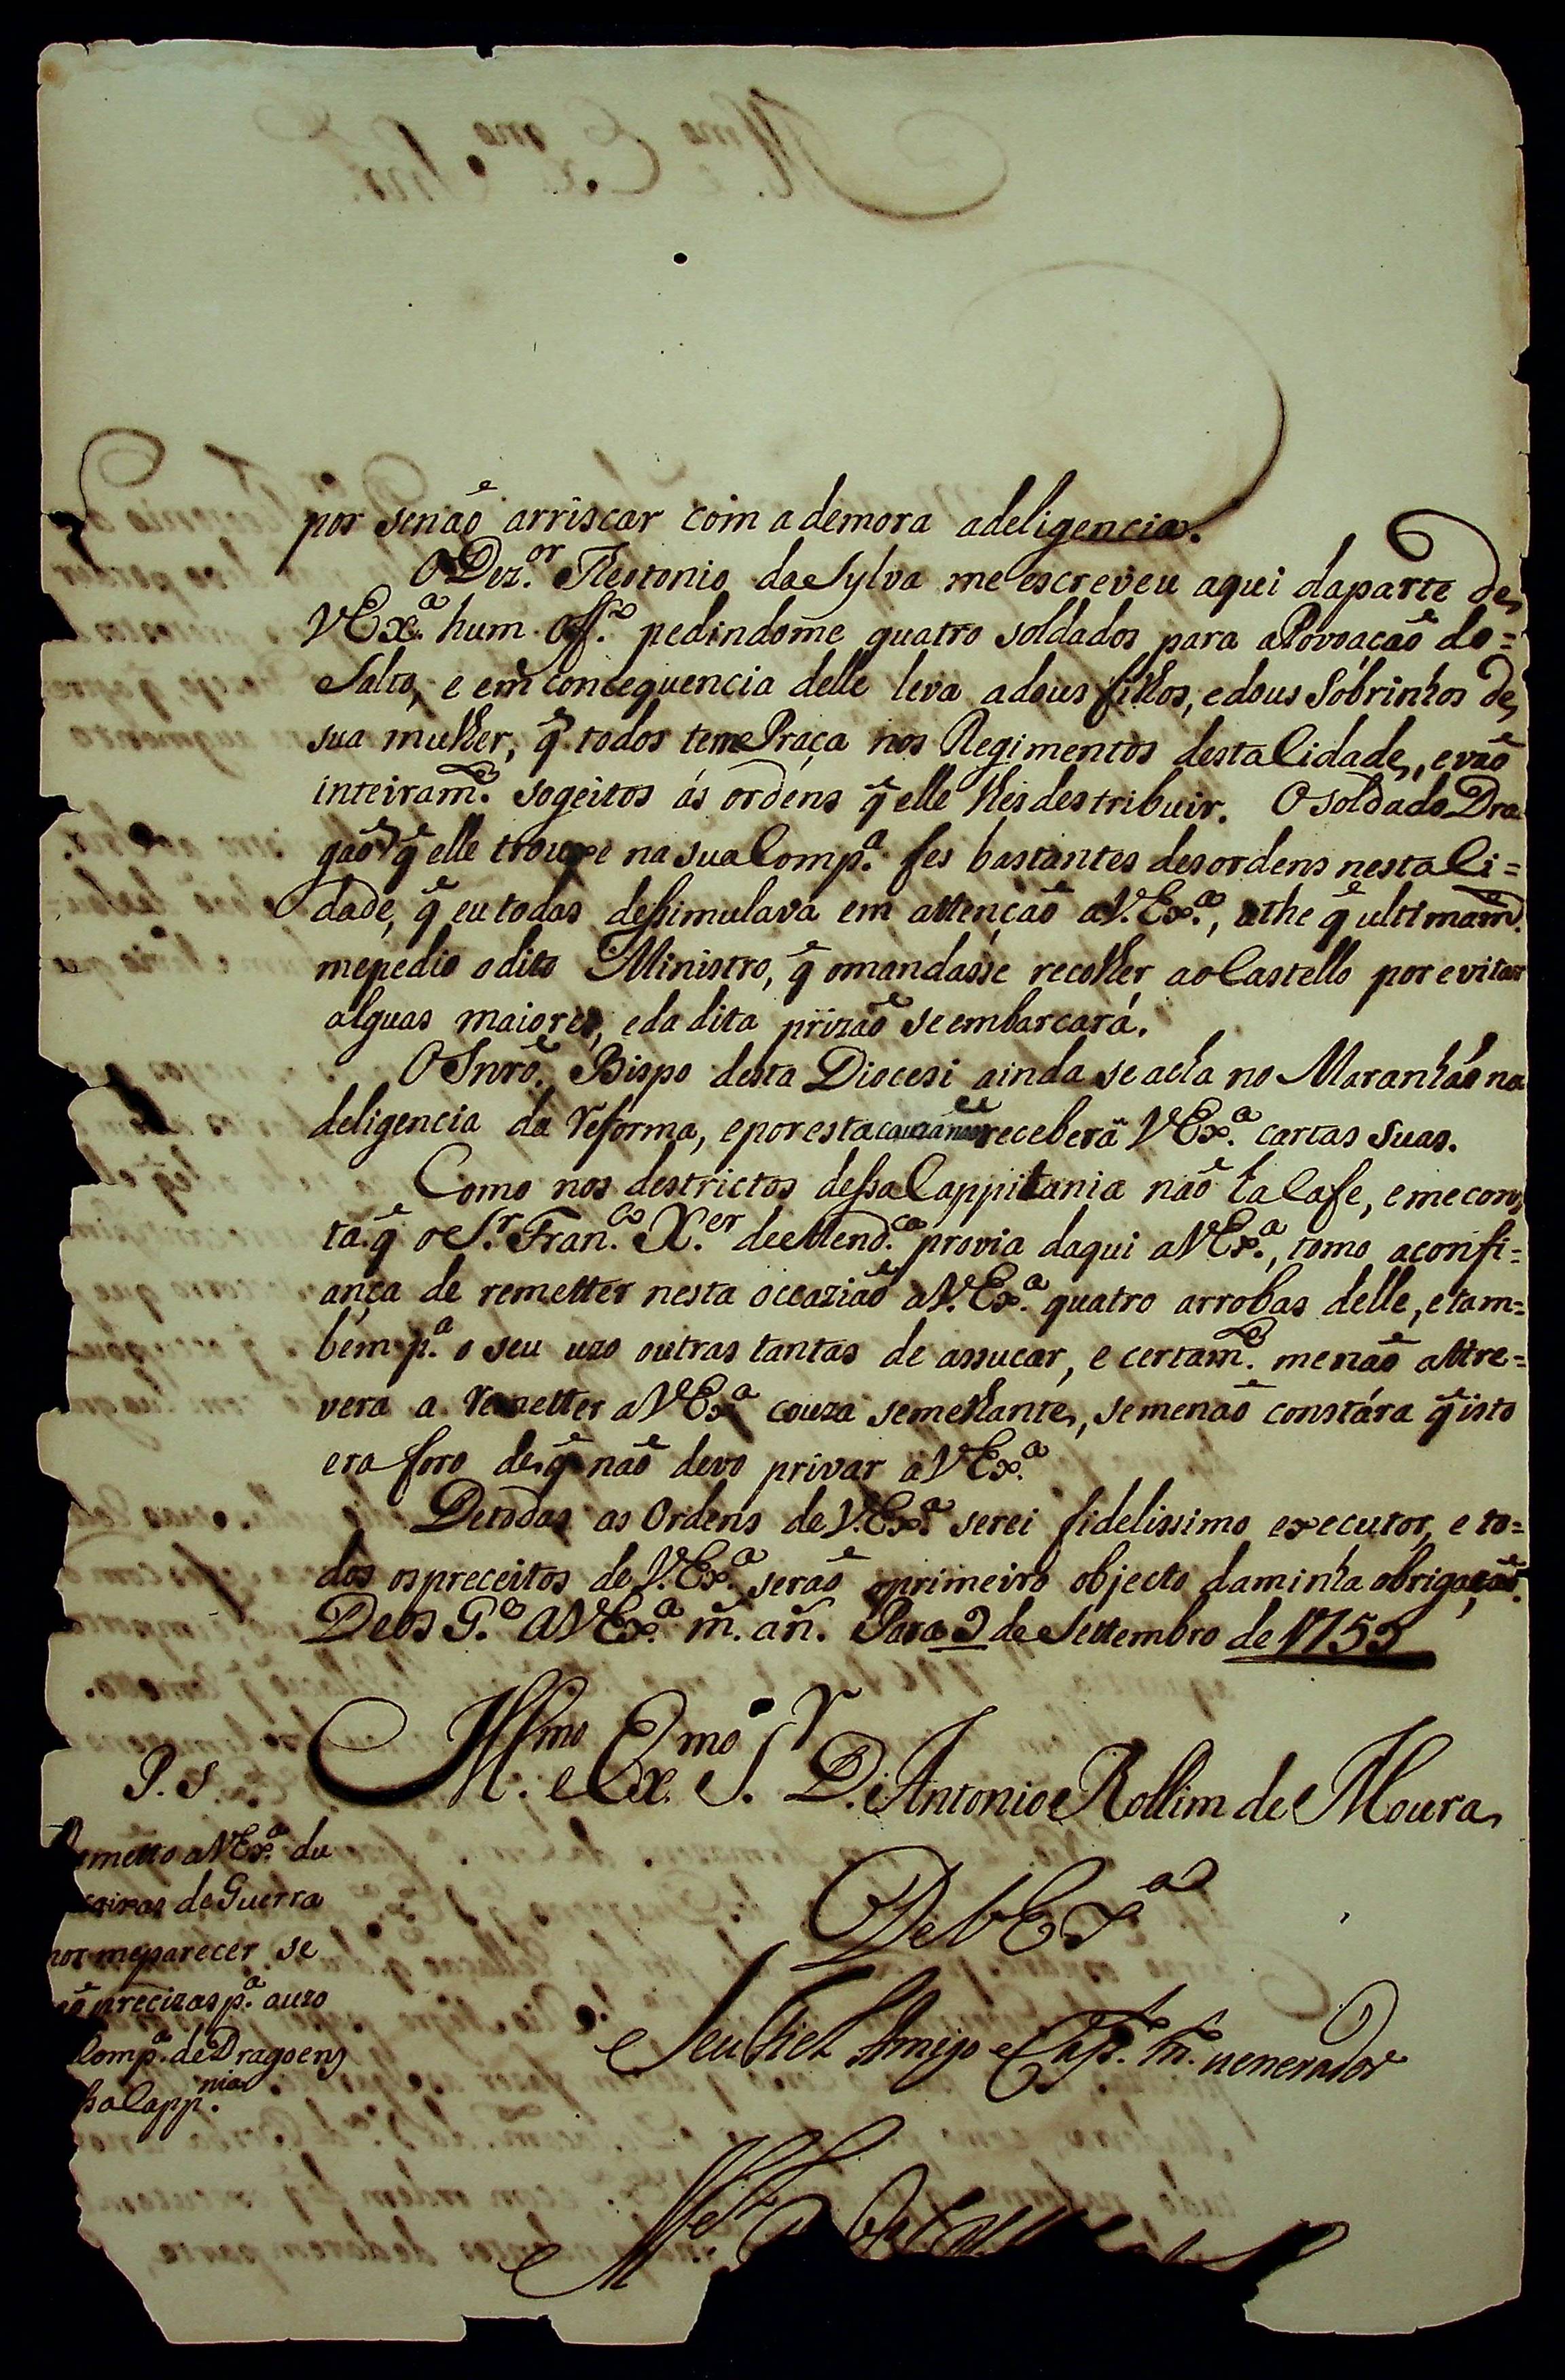 por senaõ arriscar com a demora adeligencia.
O Dez.or Theotonio da Sylva me escreveu aqui daparte de
VEx.a hum off.o pedindome quatro soldados para aPovoacaõ do=
Salto, e em concequencia delle leva adous filhos, edous Sobrinhos de
sua mulher, q̃ todos tem Praça nos Regimentos destaCidade, evaõ
inteiram.e sogeitos ás ordens q̃ elle lhes destribuir. O soldado Dra
gaõ q̃ elle trouxe na sua Comp.a fes bastantes desordens nestaCi=
dade, q̃ eu todas dessimulava em attençaõ aV.Ex.a, athe q̃ ultimam.e
mepedio odito Ministro, q̃ omandasse recolher aoCastello por evitar
alguas maiores, eda dita prizaõ se embarcará.
O Snrõ. Bispo desta Diocesi ainda se acha no Maranhaõ na
deligencia da reforma, eporesta cauza naõ receberá VEx.a cartas suas.
Como nos destrictos dessaCappitania naõ haCafe, e mecons
ta q̃ o S.r Fran.co X.er deMend.ça provia daqui aVEx.a, tomo aconfi=
ança de remetter nesta occaziaõ aV.Ex.a quatro arrobas delle, etam=
bem p.a o seu uzo outras tantas de assucar, e certam.e menaõ attre=
vera a remetter aVEx.a couza semelhante, semenaõ constára q̃ isto
era foro de q̃ naõ devo privar aVEx.a
Detodas as Ordens de V.Ex.a serei fidelissimo executor, e to=
dos ospreceitos de V.Ex.a seraõ oprimeiro objecto daminha obrigaçaõ.
Deos G.e aVEx.a m. an. Para 9 de Settembro de 1753
Ill.mo e Ex.mo S.r D. Antonio Rollim de Moura
P. S.
metto aVEx.a du
caixas de Guerra
por meparecer se
aõ precizas p.a auzo
Comp.a de Dragoens
saCapp.nia
De V Ex.a
Seu fiel Amigo e Cap. m. uenerador